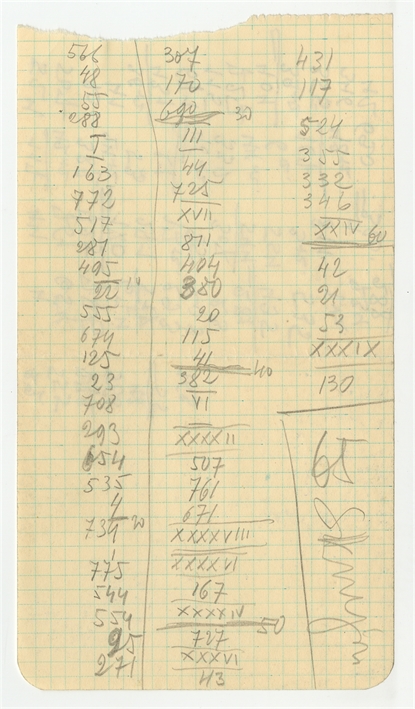 566
48
55
288
I
163
772
517
281
495
22 10
555
674
125
23
708
293
654
535
4
734 20
1
775
544
554
95
271
307
170
690 30
III
44
725
XVII
811
404
380
20
115
41
382 40
VI
XXXXII
507
761
671
XXXXVIII
XXXXVI
167
XXXXIV
727 50
XXXVI
43
431
117
524
355
332
346
XXIV 60
42
21
53
XXXIX
130
65